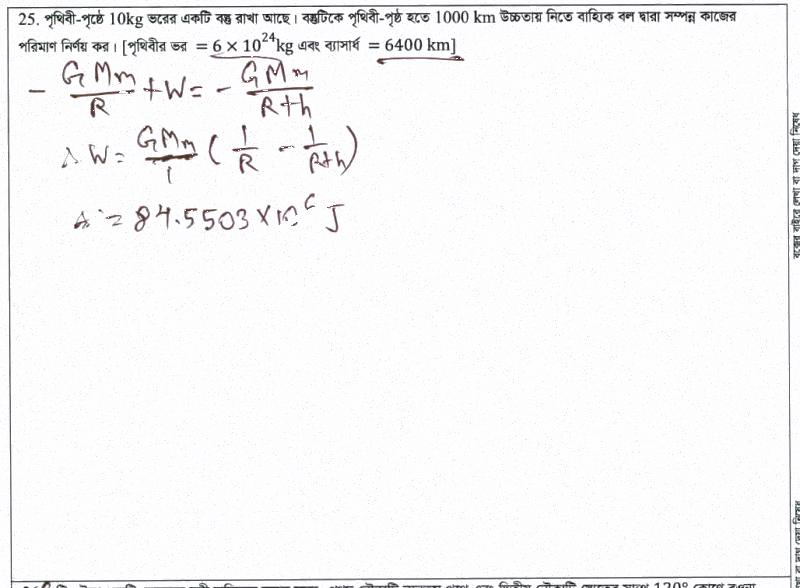 25. পৃথিবী-পৃষ্ঠে 10kg ভরের একটি বস্তু রাখা আছে। বস্তুটিকে পৃথিবী-পৃষ্ঠ হতে 1000 km উচ্চতায় নিতে বাহ্যিক বল দ্বারা সম্পন্ন কাজের
পরিমাণ নির্ণয় কর। [পৃথিবীর ভর = 6 × 10²⁴kg এবং ব্যাসার্ধ = 6400 km]
- GMm/R + W = - GMm/R+h
∴ W = GMm/1 (1/R - 1/R+h)
= 84.5503 × 10⁶ J
বক্সের বাইরে লেখা বা দাগ দেয়া নিষেধ